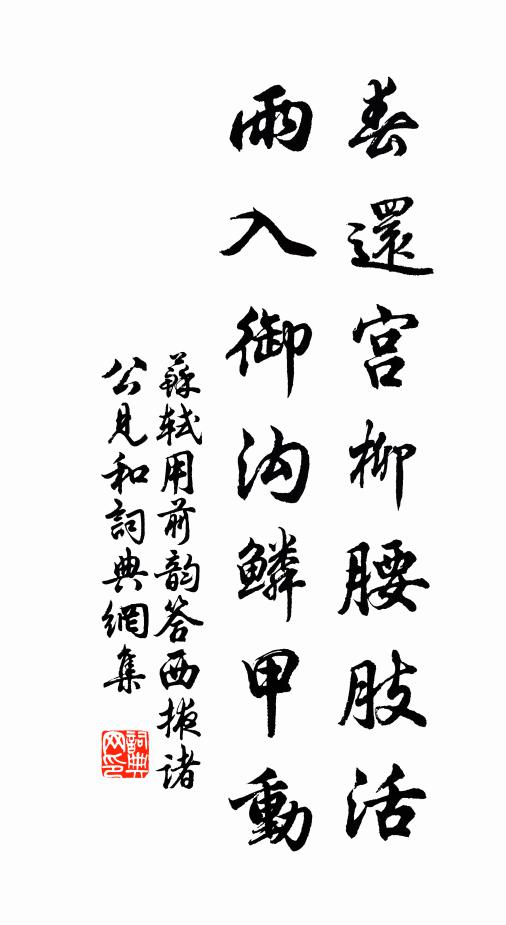 春還宮柳腰肢活
雨入御沟鱗甲動
蘇軾用前韵答西掖诸
公見和詞典網集
詞典
网印